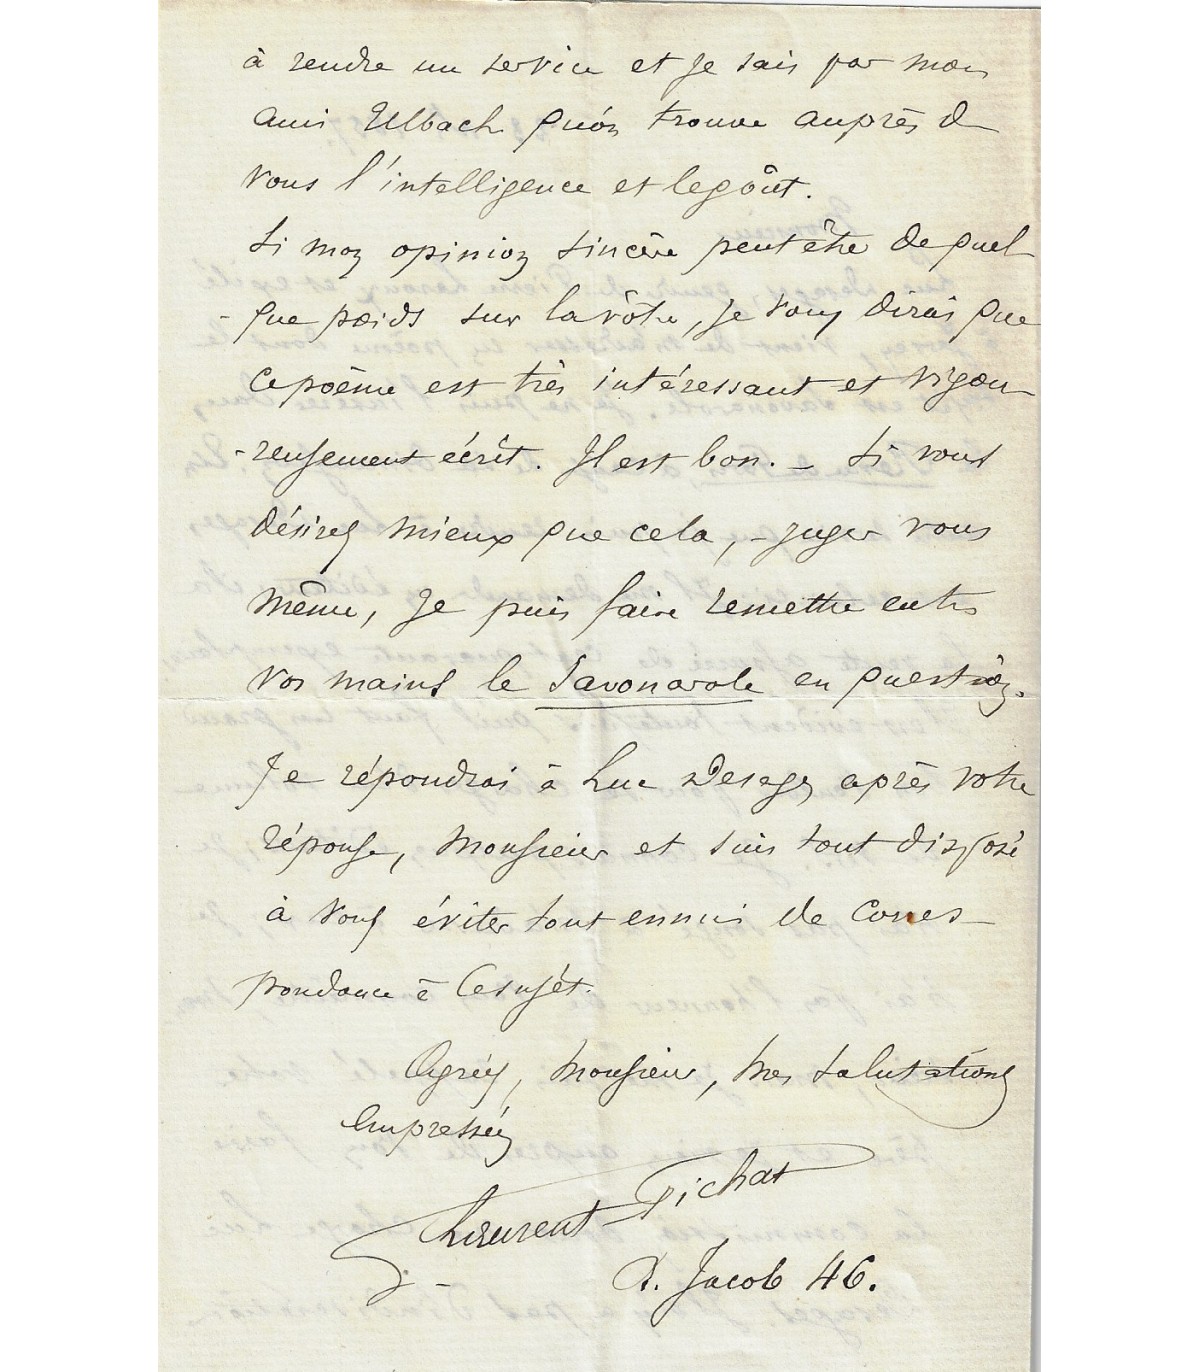 à rendre un service et je sais par mon
ami Ulbach qu'on trouve auprès de
vous l'intelligence et le goût.
Si mon opinion sincère peut être de quel
-que poids sur la vôtre, je vous dirai que
ce poème est très intéressant et vigou
-reusement écrit. Il est bon. - Si vous
désirez mieux que cela, - juger vous
même, je puis faire remettre entre
vos mains le Savonarole en question.
Je répondrai à Luc Desages après votre
réponse, Monsieur et suis tout disposé
à vous éviter tout ennui de corres-
pondance à ce sujet.
Agréez, Monsieur, mes salutations
empressées
Laurent Pichat
R. Jacob 46.